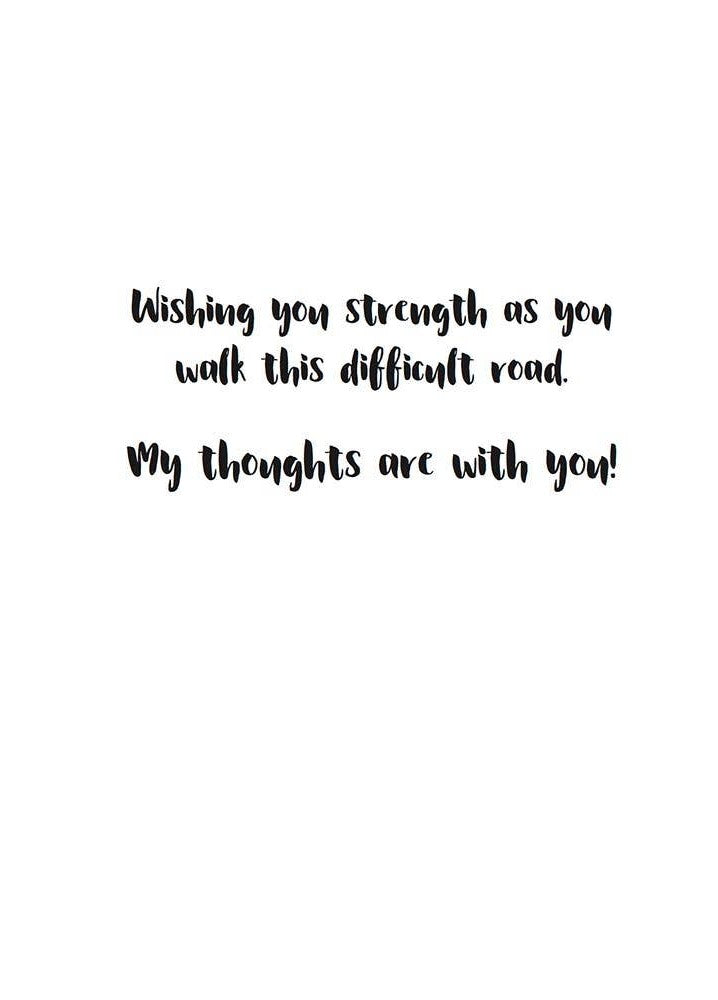 Wishing you strength as you
walk this difficult road.
My thoughts are with you!